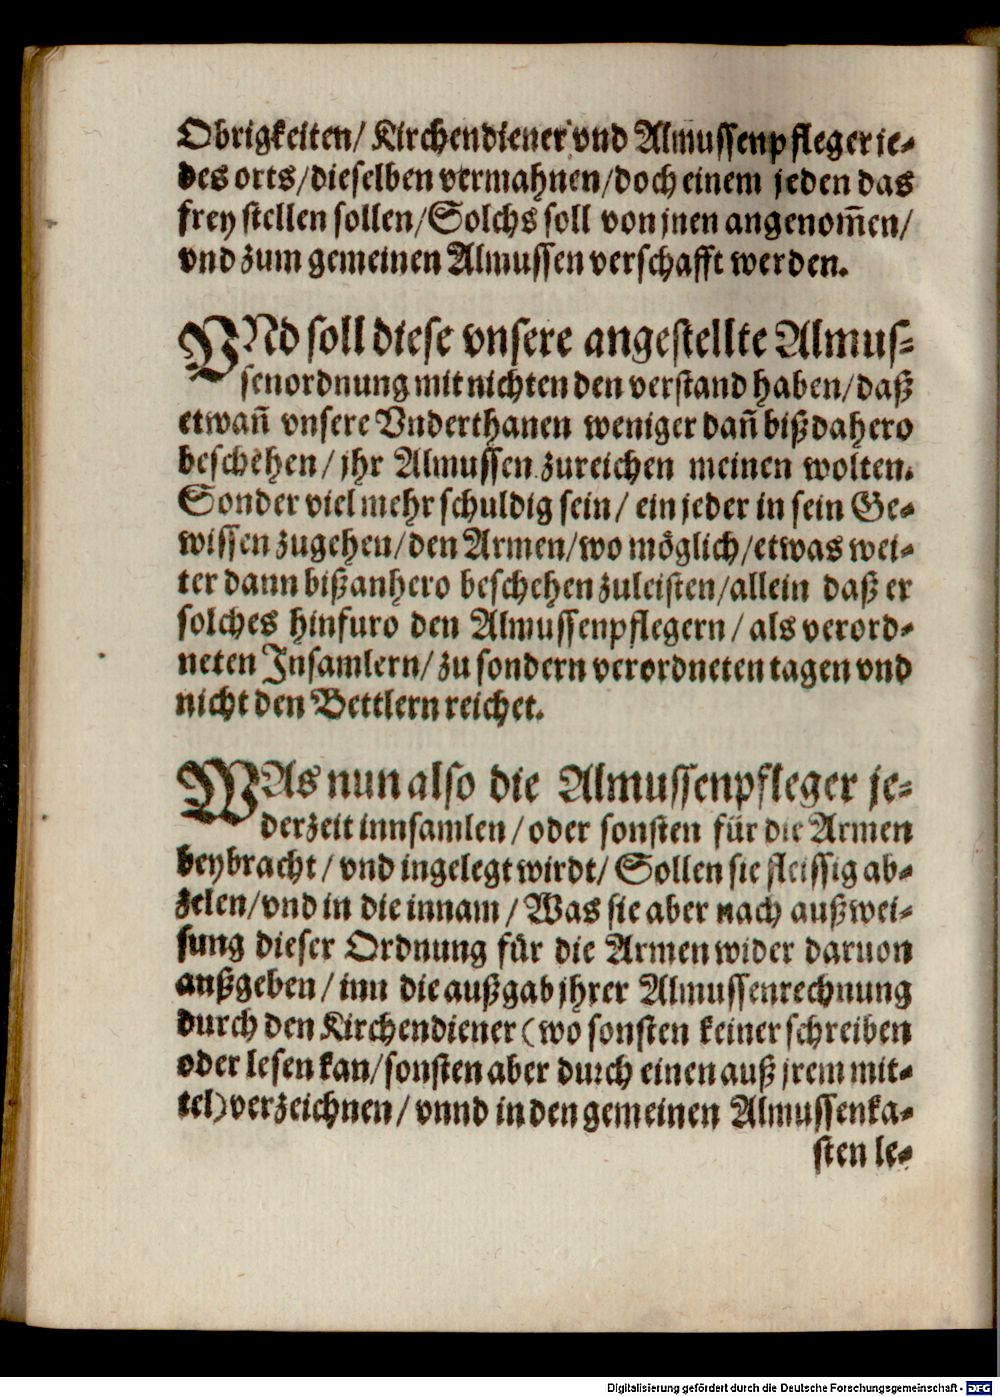 Obrigkeiten/ Kirchendiener vnd Almussenpfleger je-
des orts/dieselben vermahnen/doch einem jeden das
frey stellen sollen/Solchs soll von jnen angenom̃en/
vnd zum gemeinen Almussen verschafft werden.
VNd soll diese vnsere angestellte Almus-
senordnung mit nichten den verstand haben/daß
etwañ vnsere Vnderthanen weniger dañ bißdahero
beschehen/ jhr Almussen zureichen meinen wolten.
Sonder viel mehr schuldig sein/ ein jeder in sein Ge-
wissen zugehen/den Armen/wo möglich/etwas wei-
ter dann bißanhero beschehen zuleisten/allein daß er
solches hinfuro den Almussenpflegern/ als verord-
neten Insamlern/ zu sondern verordneten tagen vnd
nicht den Bettlern reichet.
WAs nun also die Almussenpfleger je-
derzeit innsamlen/ oder sonsten für die Armen
beybracht/ vnd ingelegt wirdt/ Sollen sie fleissig ab-
zelen/vnd in die innam/ Was sie aber nach außwei-
sung dieser Ordnung für die Armen wider daruon
außgeben/ inn die außgab jhrer Almussenrechnung
durch den Kirchendiener (wo sonsten keiner schreiben
oder lesen kan/sonsten aber durch einen auß jrem mit-
tel) verzeichnen/ vnnd in den gemeinen Almussenka-
sten le-
Digitalisierung gefördert durch die Deutsche Forschungsgemeinschaft - DFG